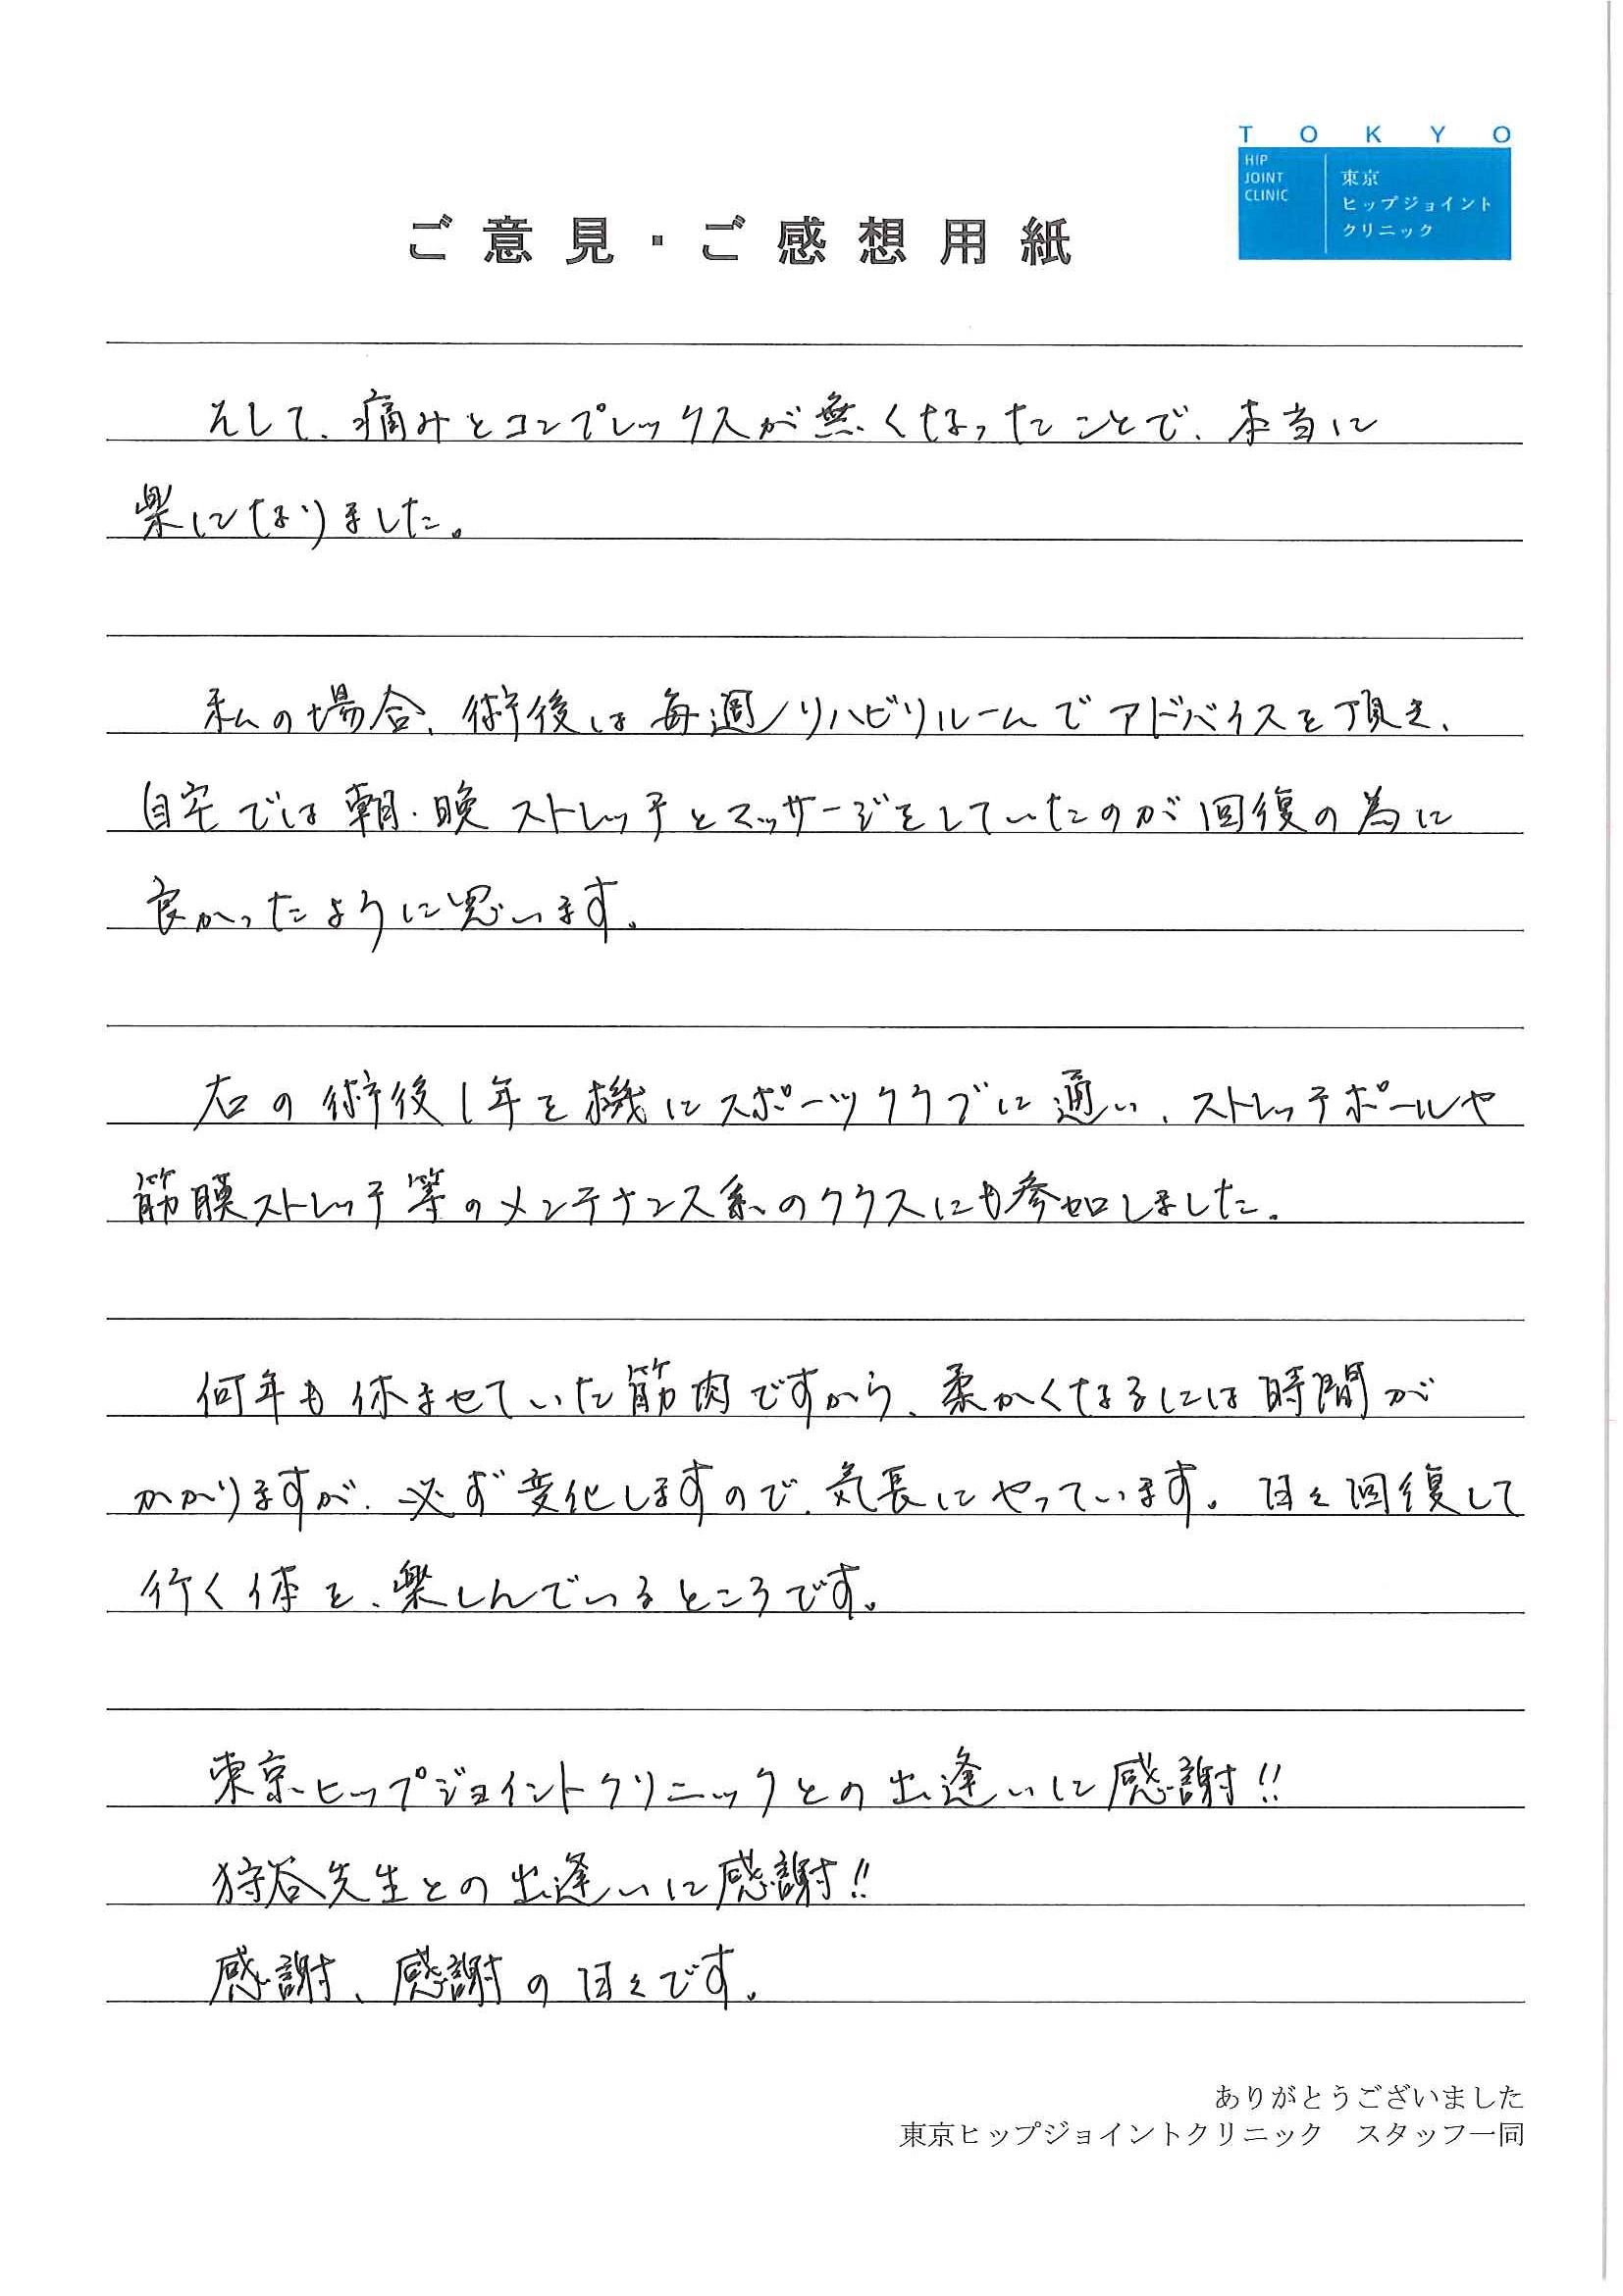 TOKYO
HIP
JOINT
CLINIC
東京
ヒップジョイント
クリニック
ご意見・ご感想用紙
そして、痛みとコンプレックスが無くなったことで、本当に
楽になりました。
私の場合、術後は毎週リハビリルームでアドバイスを頂き、
自宅では朝・晩ストレッチとマッサージをしていたのが回復の為に
良かったように思います。
右の術後1年を機にスポーツクラブに通い、ストレッチポールや
筋膜ストレッチ等のメンテナンス系のクラスにも参加しました。
何年も休ませていた筋肉ですから、柔かくなるには時間が
かかりますが、必ず変化しますので、気長にやっています。日々回復して
行く体を、楽しんでいるところです。
東京ヒップジョイントクリニックとの出逢いに感謝!!
狩谷先生との出逢いに感謝!!
感謝、感謝の日々です。
ありがとうございました
東京ヒップジョイントクリニック　スタッフ一同